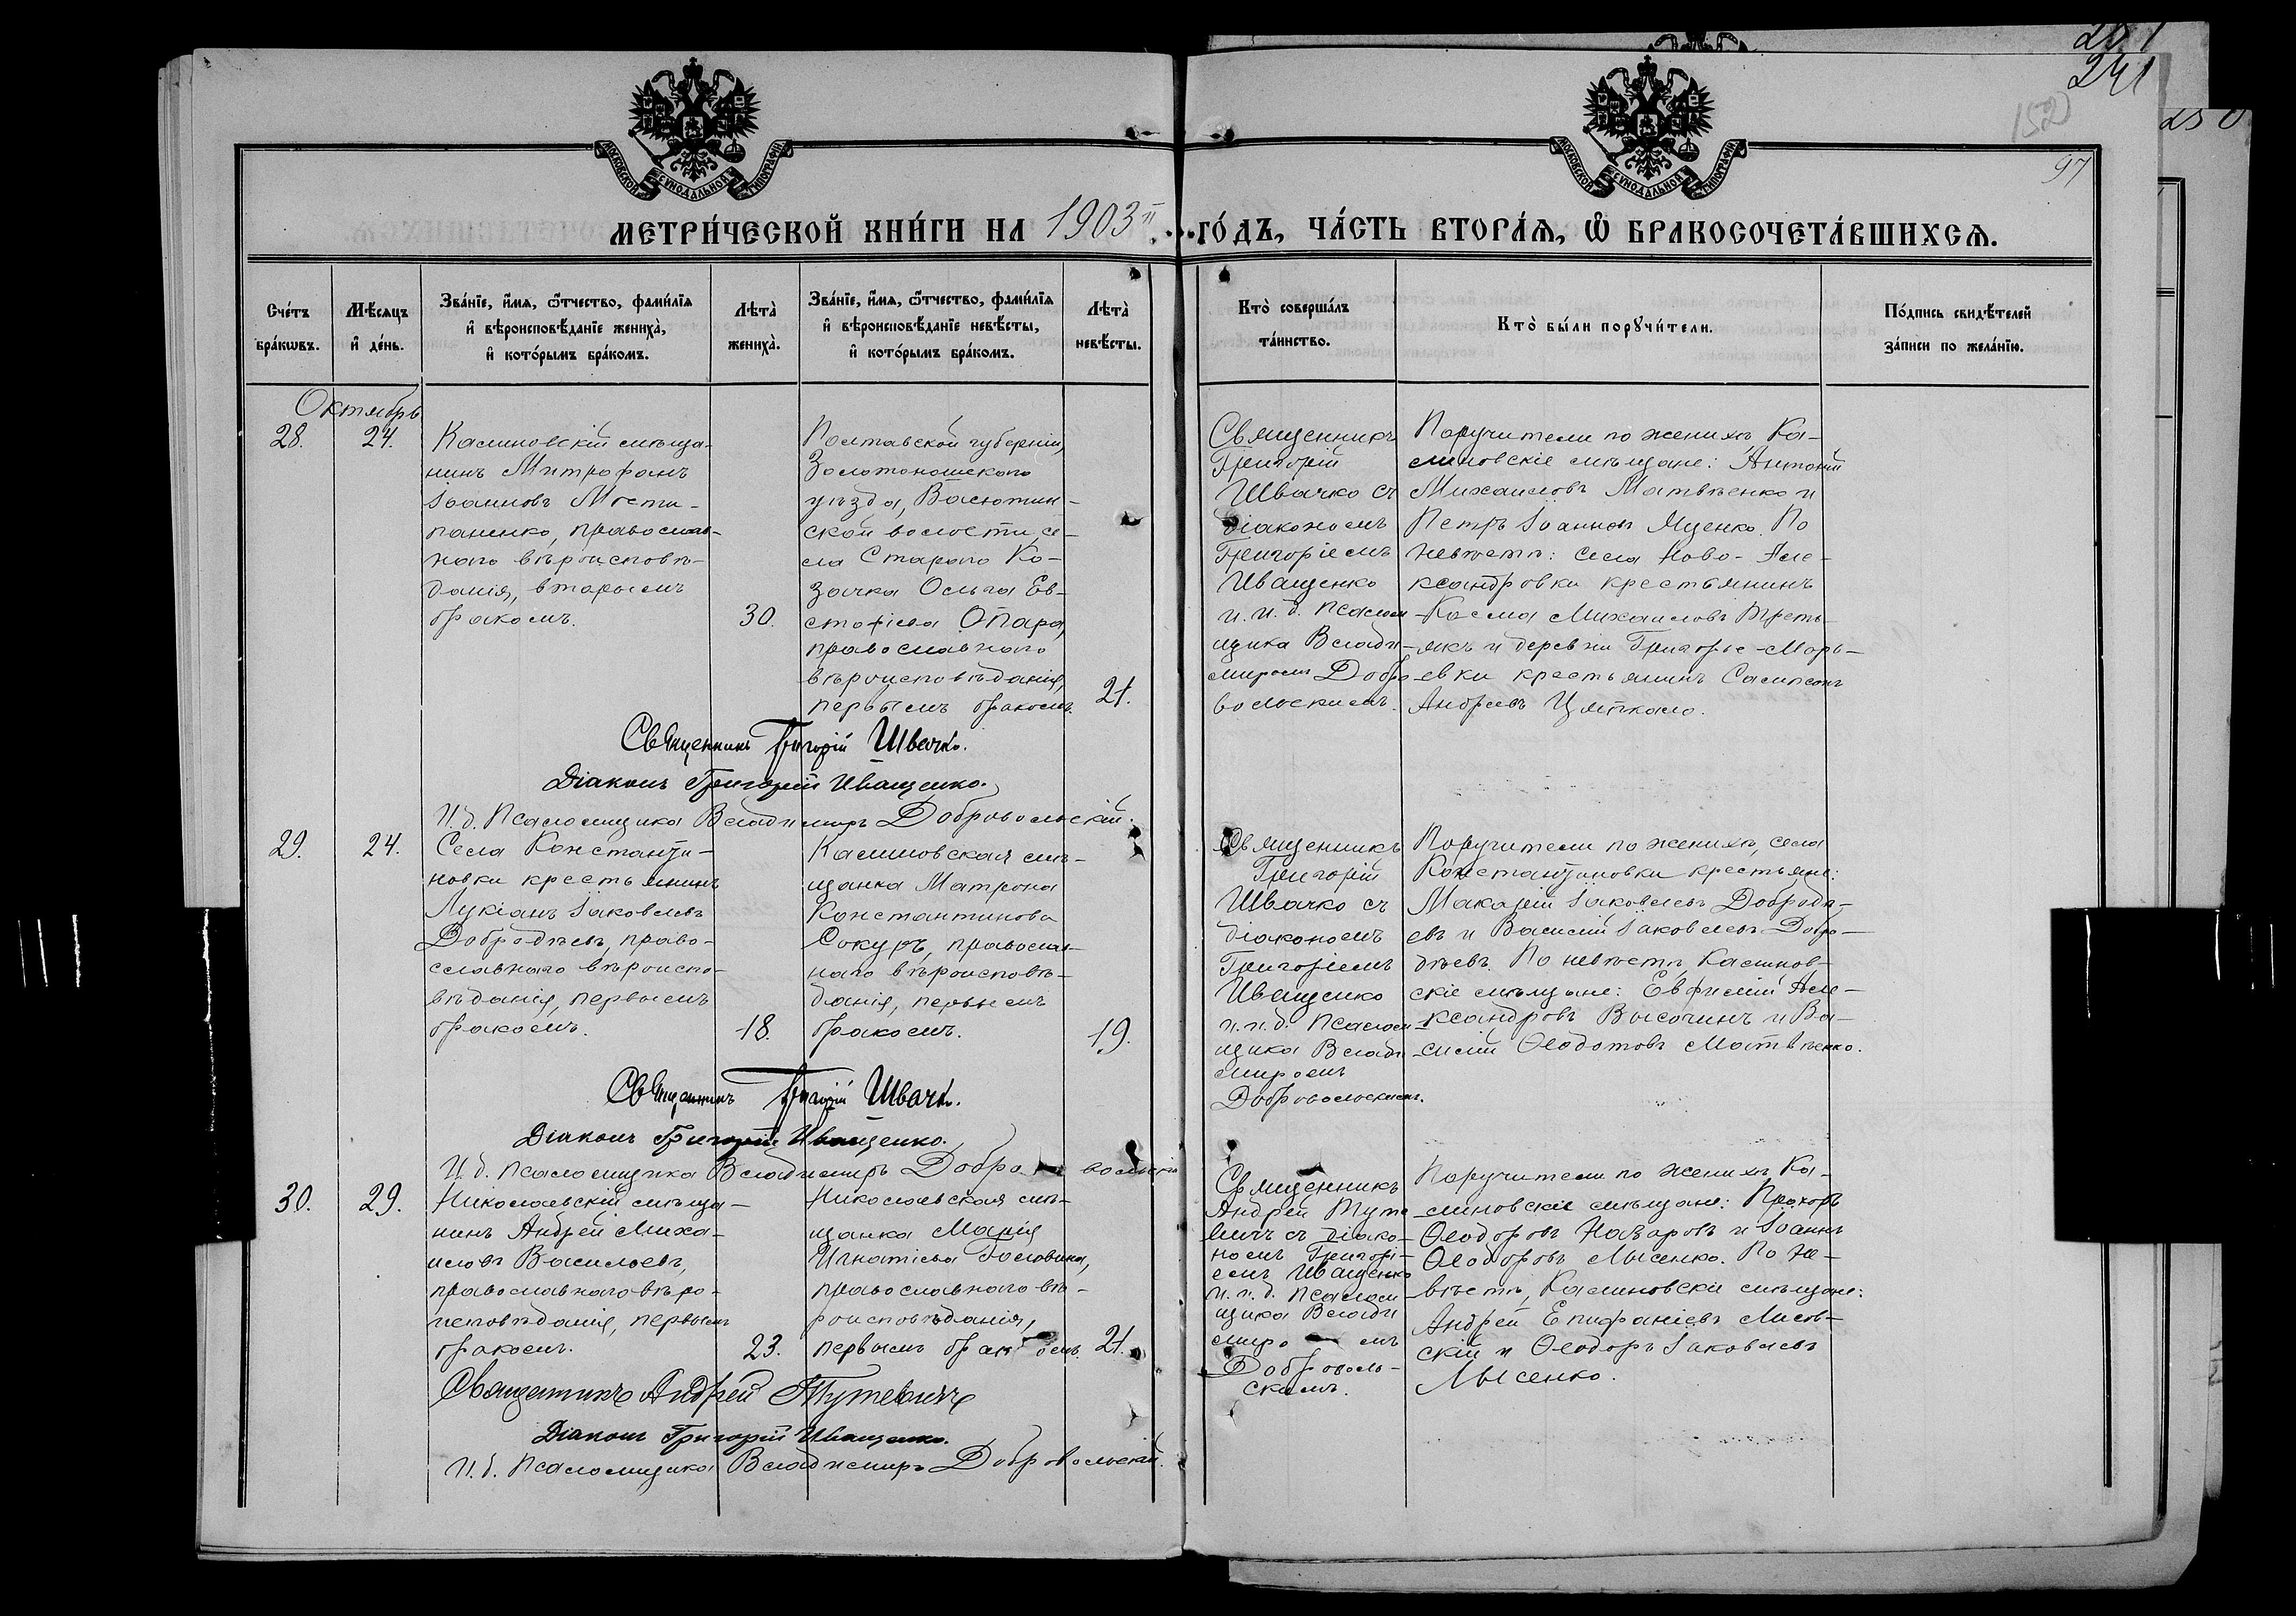 251
241
250
152
97
МОСКОВСКОЙ СѴНОДАЛЬНОЙ ТИПОГРАФІИ
МОСКОВСКОЙ СѴНОДАЛЬНОЙ ТИПОГРАФІИ
МЕТРИ́ЧЕСКОЙ КНИ́ГИ НА 1903й го́дъ, ча́сть втора́ѧ, ѽ бракосочета́вшихсѧ.
Сче́тъ
бра́кѡвъ.
Мѣ́сѧцъ
и҆ де́нь.
Зва́нїе, и҆́мѧ, ѻ҆́тчество, фами́лїѧ
и҆ вѣроисповѣ́данїе жениха̀,
и҆ кото́рымъ бра́комъ.
Лѣта̀
жениха̀.
Зва́нїе, и҆́мѧ, ѻ҆́тчество, фами́лїѧ
и҆ вѣроисповѣ́данїе невѣ́сты,
и҆ кото́рымъ бра́комъ.
Лѣта̀
невѣ́сты.
Кто̀ соверша́лъ
та́инство.
Кто̀ бы́ли порꙋчи́тели.
По́дпись свидѣ́телей
за́писи по жела́нїю.
Октябрь
28.
24.
Калиновскій мѣща-
нинъ Митрофанъ
Іоанновъ Мости-
паненко, православ-
наго вѣроисповѣ-
данія, вторымъ
бракомъ.
30.
Полтавской губерніи,
Золотоношскаго
уѣзда, Васютин-
ской волости, се-
ла Старого Ко-
зачка Ольга Ев-
стафіева Опара,
православнаго
вѣроисповѣданія,
первымъ бракомъ.
21.
Священникъ
Григорій
Швачко съ
діакономъ
Григоріемъ
Иващенко
и и. д. псалом-
щика Влади-
миромъ Добро-
вольскимъ.
Поручители по женихѣ Ка-
линовскіе мѣщане: Антоній
Михаиловъ Матвѣенко и
Петръ Іоанновъ Яценко. По
невѣстѣ: села Ново-Але-
ксандровки крестьянинъ
Косма Михаиловъ Треть-
якъ и деревни Григорье-Марь-
евки крестьянинъ Сампсонъ
Андреевъ Цяпкало.
Священникъ Григорій Швачко.
Діаконъ Григорій Иващенко.
И. д. Псаломщика Владимиръ Добровольскій.
29.
24.
Села Константи-
новки крестьянинъ
Лукіанъ Іаковлевъ
Добродѣевъ, право-
славнаго вѣроиспо-
вѣданія, первымъ
бракомъ.
18.
Калиновская мѣ-
щанка Матрона
Константинова
Сокуръ, православ-
наго вѣроисповѣ-
данія, первымъ
бракомъ.
19.
Священникъ
Григорій
Швачко съ
діакономъ
Григоріемъ
Иващенко
и и. д. псалом-
щика Влади-
миромъ
Добровольскимъ.
Поручители по женихѣ, села
Константиновки крестьяне:
Макарій Іаковлевъ Добродѣ-
евъ и Василій Іаковлевъ Добро-
дѣевъ. По невѣстѣ, Калинов-
скіе мѣщане: Евфимій Але-
ксандровъ Высочинъ и Ва-
силій Ѳеодотовъ Матвѣенко.
Священникъ Григорій Швачко.
Діаконъ Григорій Иващенко.
И. д. псаломщика Владимиръ Добровольскій
30.
29.
Николаевскій мѣща-
нинъ Андрей Миха-
иловъ Васильевъ,
православнаго вѣро-
исповѣданія, первымъ
бракомъ.
23.
Николаевская мѣ-
щанка Марія
Игнатіева Головина,
православнаго вѣ-
роисповѣданія,
первымъ бракомъ.
21.
Священникъ
Андрей Туте-
вичъ съ діако-
номъ Григорі-
емъ Иващенко
и и. д. псалом-
щика Влади-
миромъ
Доброволь-
скимъ.
Поручители по женихѣ Ка-
линовскіе мѣщане: Прохоръ
Ѳеодоровъ Назаровъ и Іоаннъ
Ѳеодоровъ Лысенко. По не-
вѣстѣ, Калиновскіе мѣщане:
Андрей Епифаніевъ Лисов-
скій и Ѳеодоръ Іаковлевъ
Лысенко.
Священникъ Андрей Тутевичъ
Діаконъ Григорій Иващенко.
И. д. Псаломщика Владимиръ Добровольскій.